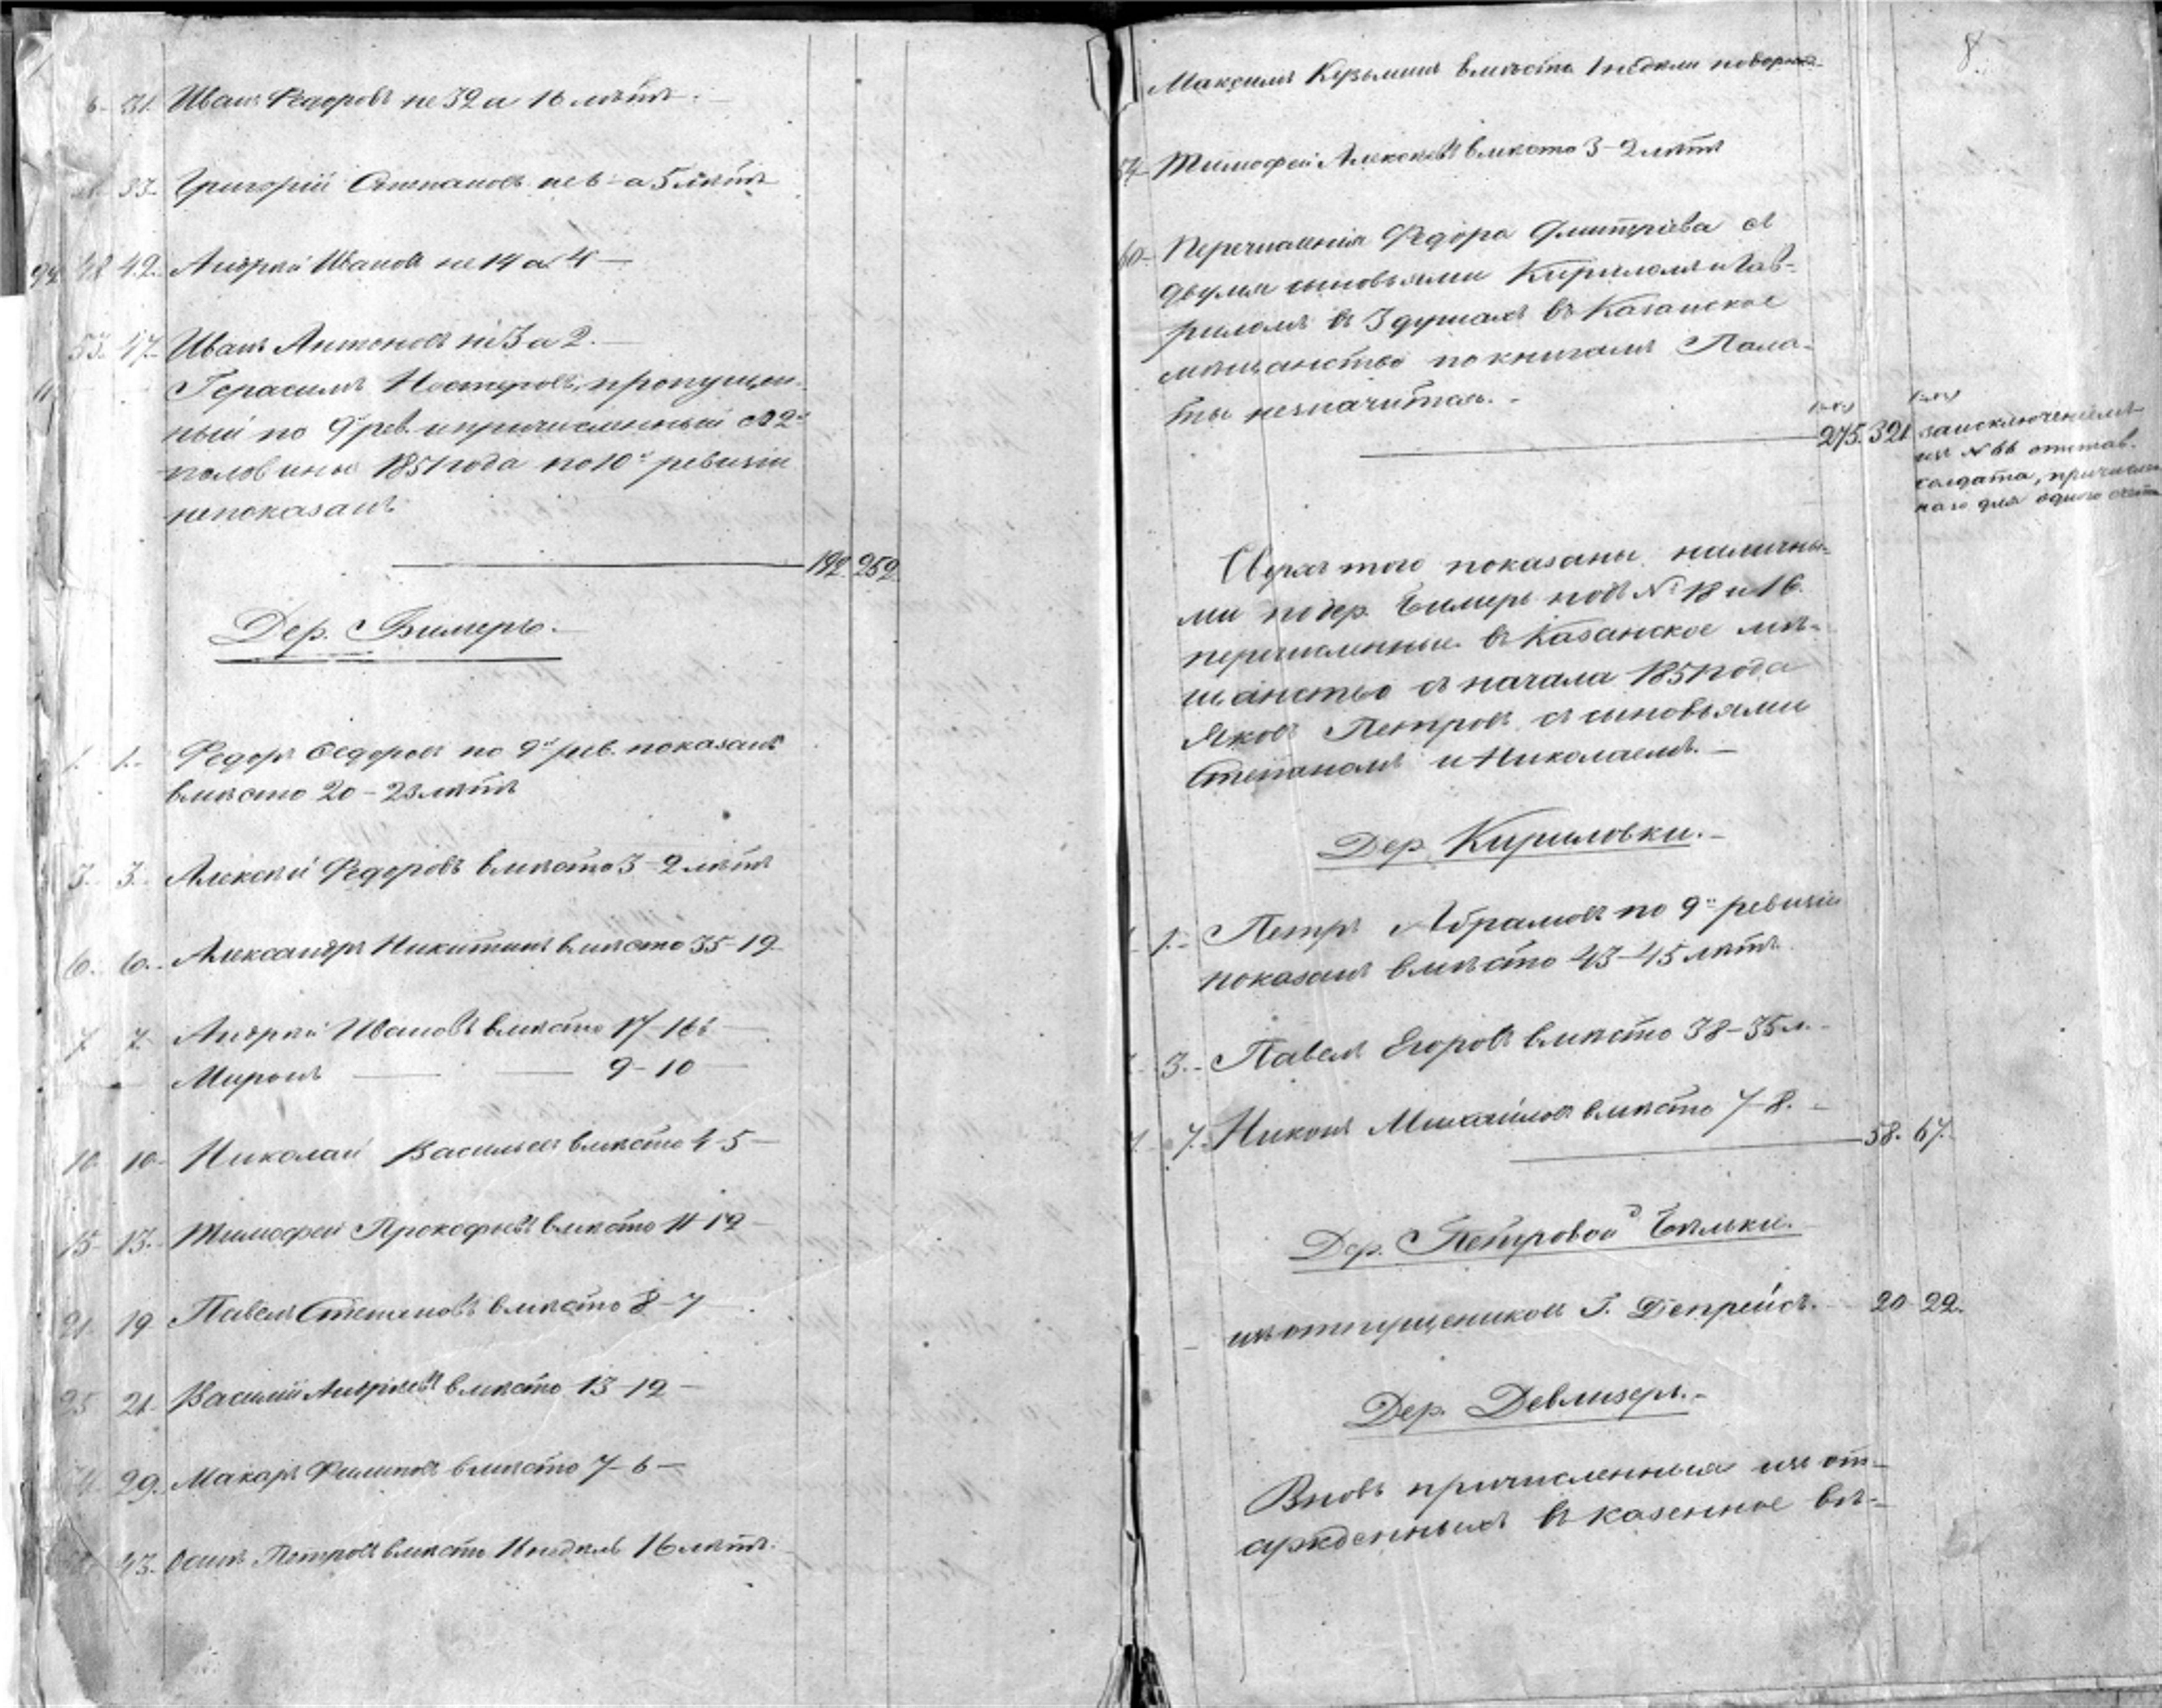 31. Иванъ Федоровъ не 32 а 16 лѣтъ. —
33. Григорій Степановъ не 6 - а 5 лѣтъ
42. Андрей Ивановъ не 14 а 4 —
53. 47. Иванъ Антоновъ не 3 а 2. —
Герасимъ Нестеровъ, пропущен-
ный по 9й рев. и причисленный съ 2й
половины 1851 года по 10й ревизіи
непоказанъ
192 252
Дер. Бимерь. —
1. 1. Федоръ Федоровъ по 9й рев. показанъ
вмѣсто 20 - 23 лѣтъ
3. 3. Алексѣй Федоровъ вмѣсто 3 - 2 лѣтъ
6. 6. Александръ Никитинъ вмѣсто 35 - 19
7 7. Андрей Ивановъ вмѣсто 17 - 16 —
Миронъ — — 9 - 10 —
10 10 Николай Васильевъ вмѣсто 4 - 5 —
15 13. Тимофей Прокофьевъ вмѣсто 11 12 —
21. 19 Павелъ Степановъ вмѣсто 8 - 7
25 21. Василій Андреевъ вмѣсто 13 - 12 —
29. Макаръ Филиповъ вмѣсто 7 - 6 —
43. Осипъ Петровъ вмѣсто 11 недѣль 16 лѣтъ.
8.
Максимъ Кузьминъ вмѣсто 1 недѣли
54 Тимофей Алексѣевъ вмѣсто 3 - 2 лѣтъ
60 Перечисленія Федора Дмитріева съ
двумя сыновьями Кириломъ и Гав-
риломъ въ 3 душахъ въ Казанское
мѣщанство по книгамъ Пала-
ты незначится. -
275. 321 за исключеніемъ
изъ № 66 отстав.
солдата, причислен
наго для одного счета
Сверхъ того показаны наличны-
ми по дер. Бимерь подъ № 18 и 16.
перечисленные въ Казанское мѣ-
щанство съ начала 1851 года
Яковъ Петровъ съ сыновьями
Степаномъ и Николаемъ. —
Дер. Кириловки. —
1. - Петръ Абрамовъ по 9й ревизіи
показанъ вмѣсто 43 - 45 лѣтъ.
3. - Павелъ Егоровъ вмѣсто 38 - 35 л. -
7. - Никонъ Михайловъ вмѣсто 7 - 8. -
58. 67.
Дер. Петровой Бѣльки. -
изъ отпущениковъ Г. Депрейсъ. - 20 22.
Дер. Девлизери. -
Вновь причисленныя изъ от-
сужденныхъ въ казенное вѣ-